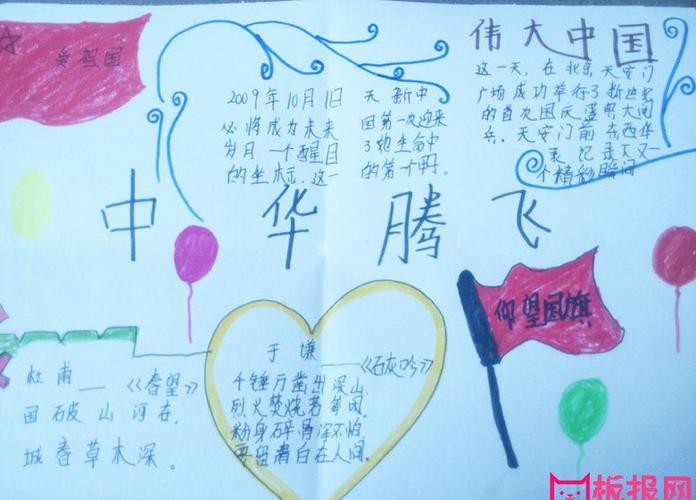 爱祖国
伟大中国
2009年10月1日
必将成为未来
岁月一个醒目
的坐标.这一
天新中
国第一次迎来
了她生命中
的第一个
这一天，在北京天安门
广场成功举行了新世纪
的首次国庆盛明大阅
兵。天安门前东西华
表记录下又一
个精彩瞬间
中华腾飞
仰望国旗
杜甫——《春望》
国破山河在，
城春草木深。
于谦——《石灰吟》
千锤万凿出深山，
烈火焚烧若等闲。
粉身碎骨浑不怕，
要留清白在人间。
板报网